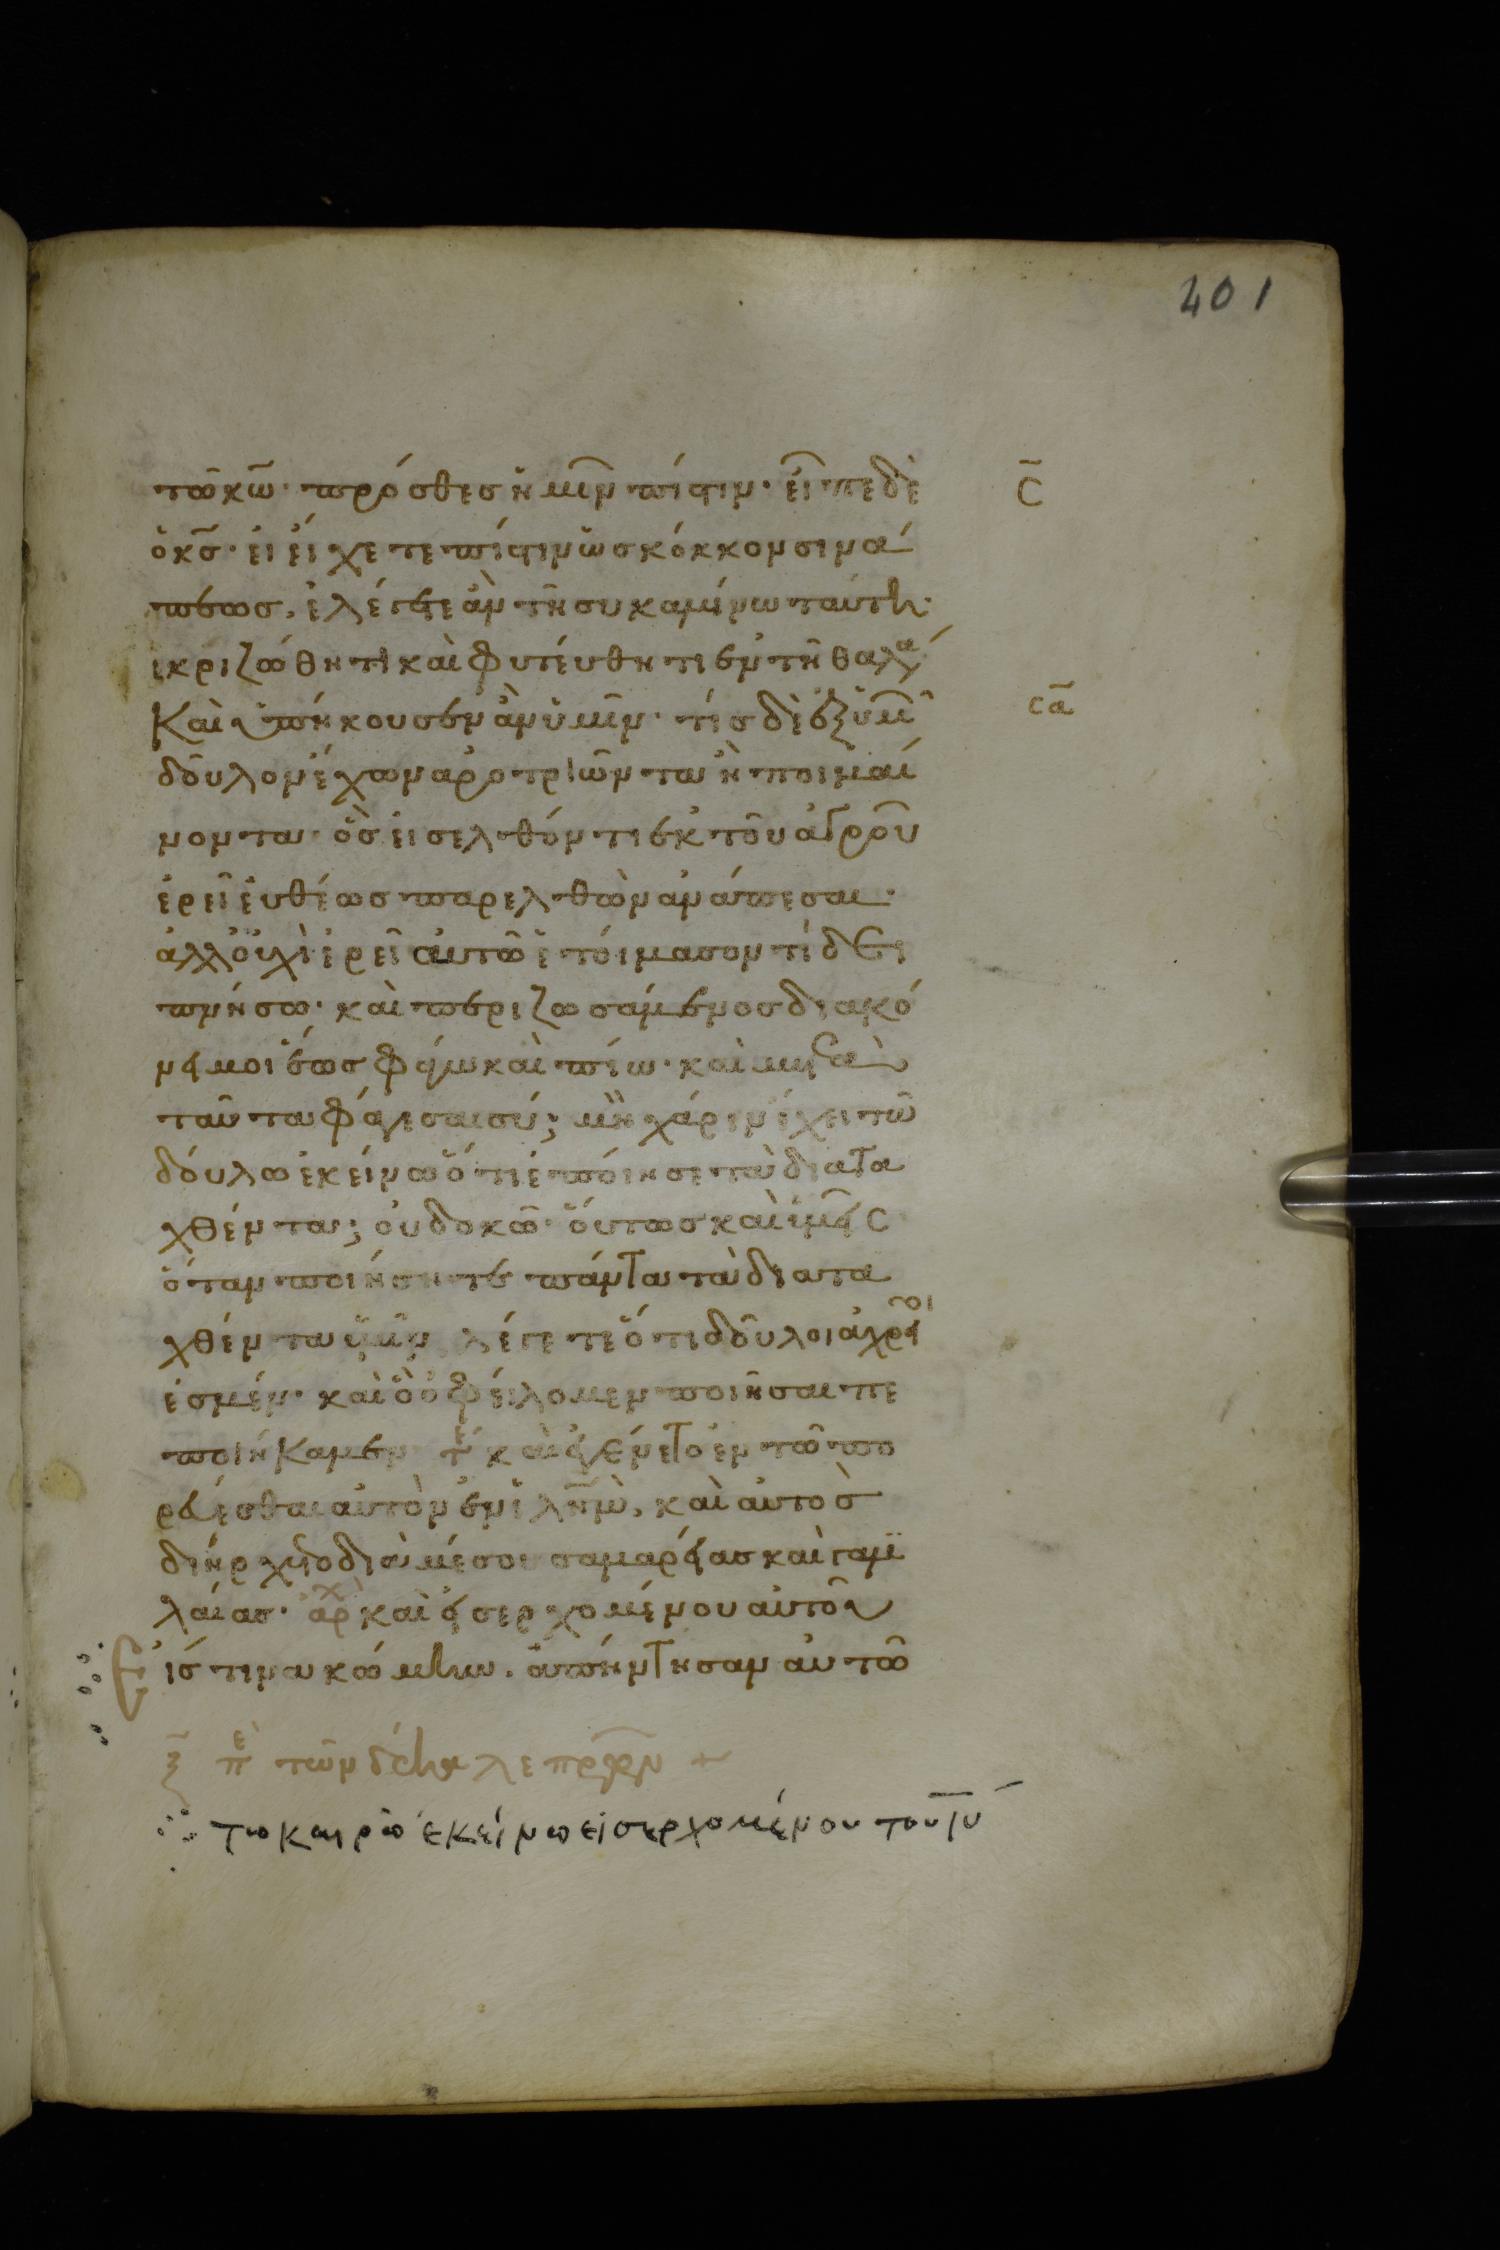 401
τῶ κω̅· πρόσθεσ ἡμῖν πίστιν· εἶπε δὲ
ὁ κσ̅· εἰ εἴχετε πίστιν ὡσ κόκκον σινά
πεωσ, ἐλέγετε ἂν τῆ συκαμίνω ταύτη·
ἐκριζώθητι καὶ φυτεύθητι ἐν τῆ θαλά
Καὶ ὑπήκουσεν ἂν ὑμῖν· τίσ δὲ ἐξ ὑμῶ
δοῦλον ἔχων ἀροτριῶντα ἢ ποιμαί
νοντα· ὃσ εἰσελθόντι ἐκ τοῦ ἀγροῦ
ἐρεῖ εὐθέωσ παρελθὼν ἀνάπεσαι·
ἀλλ' οὐχὶ ἐρεῖ αὐτῶ ἑτοίμασον τί δει
πνήσω· καὶ περιζωσάμενοσ διακό
νει μοι ἕωσ φάγω καὶ πίω· καὶ μετὰ
ταῦτα φάγεσαι σύ; μὴ χάριν ἔχει τῶ
δούλω ἐκείνω ὅτι ἐποίησε τὰ διατα
χθέντα; οὐ δοκῶ· οὕτωσ καὶ ὑμεῖσ
ὅταν ποιήσητε πάντα τὰ διατα
χθέντα ὑμῖν λέγετε ὅτι δοῦλοι ἀχρεῖοι
ἐσμέν· καὶ ὃ ὀφείλομεν ποιῆσαι πε
ποιήκαμεν τε καὶ ἐγένετο ἐν τῶ πο
ρεύεσθαι αὐτὸν ἐν ἱλημ̅, καὶ αὐτὸσ
διήρχετο διὰ μέσου σαμαρείασ καὶ γαλι
λαίασ· ἀρχ καὶ εἰσερχομένου αὐτοῦ
εἴσ τινα κώμην. ἀπήντησαν αὐτῶ
ξ πε τῶν δέκα λεπρῶν +
τω καιρῶ ἐκείνω εἰσερχομένου του ιυ̅
σ̅
σα̅